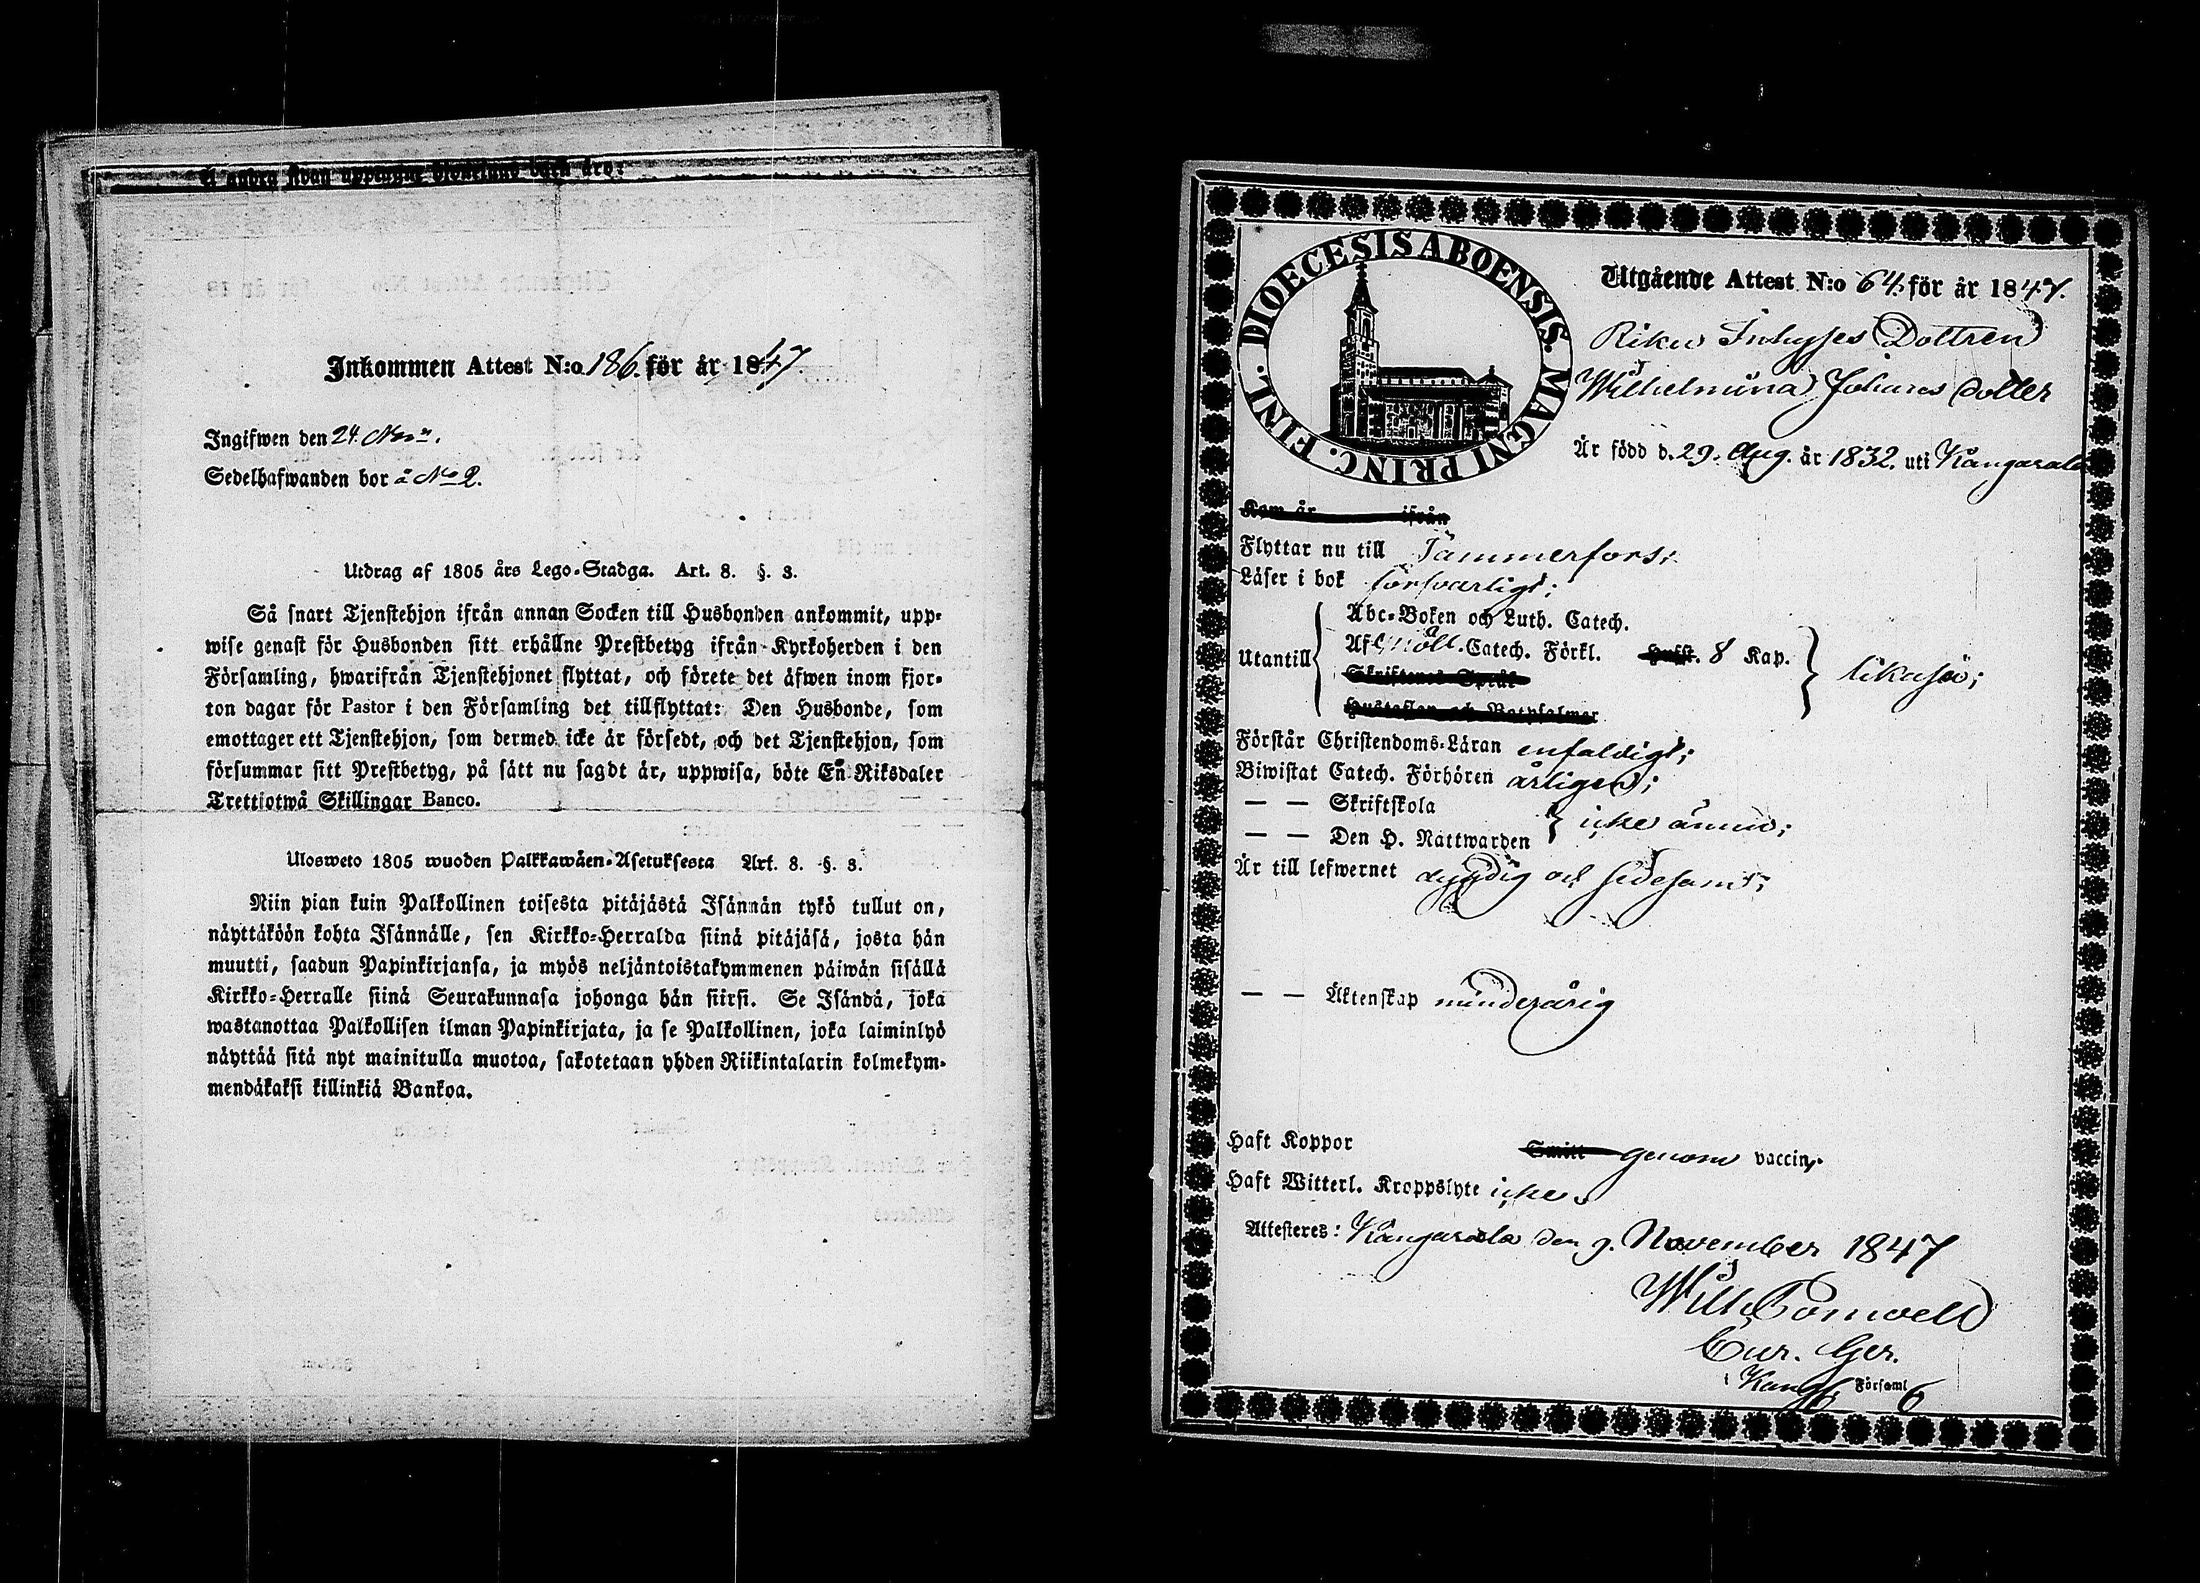 Inkommen Attest N:o 186. för år 1847.
Ingifwen den 24. Nov.
Sedelhafwanden bor å No 2.
Utdrag af 1805 års Lego-Stadga. Art. 8. §. 3.
Så snart Tjenstehjon ifrån annan Socken till Husbonden ankommit, upp-
wise genast för Husbonden sitt erhållne Prestbetyg ifrån Kyrkoherden i den
Församling, hwarifrån Tjenstehjonet flyttat, och förete det äfwen inom fjor-
ton dagar för Pastor i den Församling det tillflyttat: Den Husbonde, som
emottager ett Tjenstehjon, som dermed icke är försedt, och det Tjenstehjon, som
försummar sitt Prestbetyg, på sätt nu sagdt är, uppwisa, böte En Riksdaler
Trettiotwå Skillingar Banco.
Ulosweto 1805 wuoden Palkkawäen-Asetuksesta Art. 8. §. 3.
Niin pian kuin Palkollinen toisesta pitäjästä Isännän tykö tullut on,
näyttäköön kohta Isännälle, sen Kirkko-Herralda siinä pitäjäsä, josta hän
muutti, saadun Papinkirjansa, ja myös neljäntoistakymmenen päiwän sisällä
Kirkko-Herralle siinä Seurakunnasa johonga hän siirsi. Se Isändä, joka
wastanottaa Palkollisen ilman Papinkirjata, ja se Palkollinen, joka laiminlyö
näyttää sitä nyt mainitulla muotoa, sakotetaan yhden Riikintalarin kolmekym-
mendäkaksi killinkiä Bankoa.
DIOECESIS ABOENSIS. MAGNI PRINC. FINL.
Utgående Attest N:o 64. för år 1847.
Riku Inhyses Dottren
Wilhelmina Johans dotter
Är född d. 29. Aug. år 1832. uti Kangasala
Kom år ifrån
Flyttar nu till Tammerfors;
Läser i bok försvarligt;
Utantill
Abc-Boken och Luth. Catech.
Af Möll. Catech. Förkl. Hufst. 8 Kap.
Skriftenes Språk
Hustaflan och Botpsalmer
likaså;
Förstår Christendoms-Läran enfaldigt;
Biwistat Catech. Förhören årligen;
— — Skriftskola
— — Den H. Nattwarden
icke ännu;
Är till lefwernet dygdig och sedesam;
— — Äktenskap minderårig
Haft Koppor Smitt genom vaccin.
Haft Witterl. Kroppslyte icke.
Attesteres: Kangasala den 9. November 1847
Cur. Ger.
i Kang. Församl